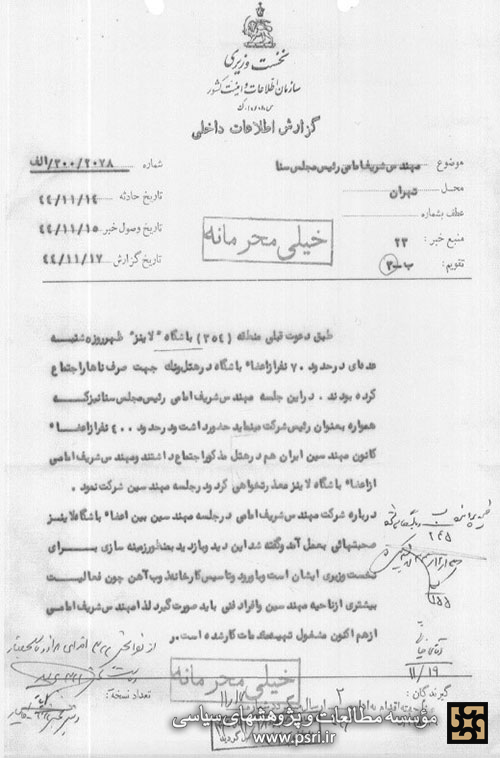 نخست وزیری
سازمان اطلاعات و امنیت کشور
گزارش اطلاعات داخلی
موضوع مهندس شریف امامی رئیس مجلس سنا
شماره ۳۰۰/۲۰۷۸/الف
محل تهران
تاریخ حادثه ۴۴/۱۱/۱۴
عطف بشماره
تاریخ وصول خبر ۴۴/۱۱/۱۵
منبع خبر : ۲۳
تاریخ گزارش ۴۴/۱۱/۱۷
تقویم: ب-۳
خیلی محرمانه
طبق دعوت قبلی منطقه (۳۵۴) باشگاه "لاینز" ظهر روز شنبه
عده‌ای در حدود ۷۰ نفر از اعضاء باشگاه در هتل ونک جهت صرف ناهار اجتماع
کرده بودند . در این جلسه مهندس شریف امامی رئیس مجلس سنا نیز که
همواره بعنوان رئیس شرکت مینماید حضور داشت و در حدود ۴۰۰ نفر از اعضاء
کانون مهندسین ایران هم در هتل مذکور اجتماع داشتند و مهندس شریف امامی
از اعضاء باشگاه لاینز معذرتخواهی کرد و در جلسه مهندسین شرکت نمود .
درباره شرکت مهندس شریف امامی در جلسه مهندسین بین اعضاء باشگاه لاینز
صحبتهائی بعمل آمد و گفته شد این دید و بازدید بمنظور زمینه سازی برای
نخست وزیری ایشان است و با ورود و تاسیس کارخانه ذوب آهن چون فعالیت
بیشتری از ناحیه مهندسین و افراد فنی باید صورت گیرد لذا مهندس شریف امامی
از هم اکنون مشغول تهیه مقدمات کار شده است.
۲۴۵
۱۱/۱۹
خیلی محرمانه
گیرندگان :
تعداد نسخه :
مؤسسه مطالعات و پژوهشهای سیاسی
www.psri.ir